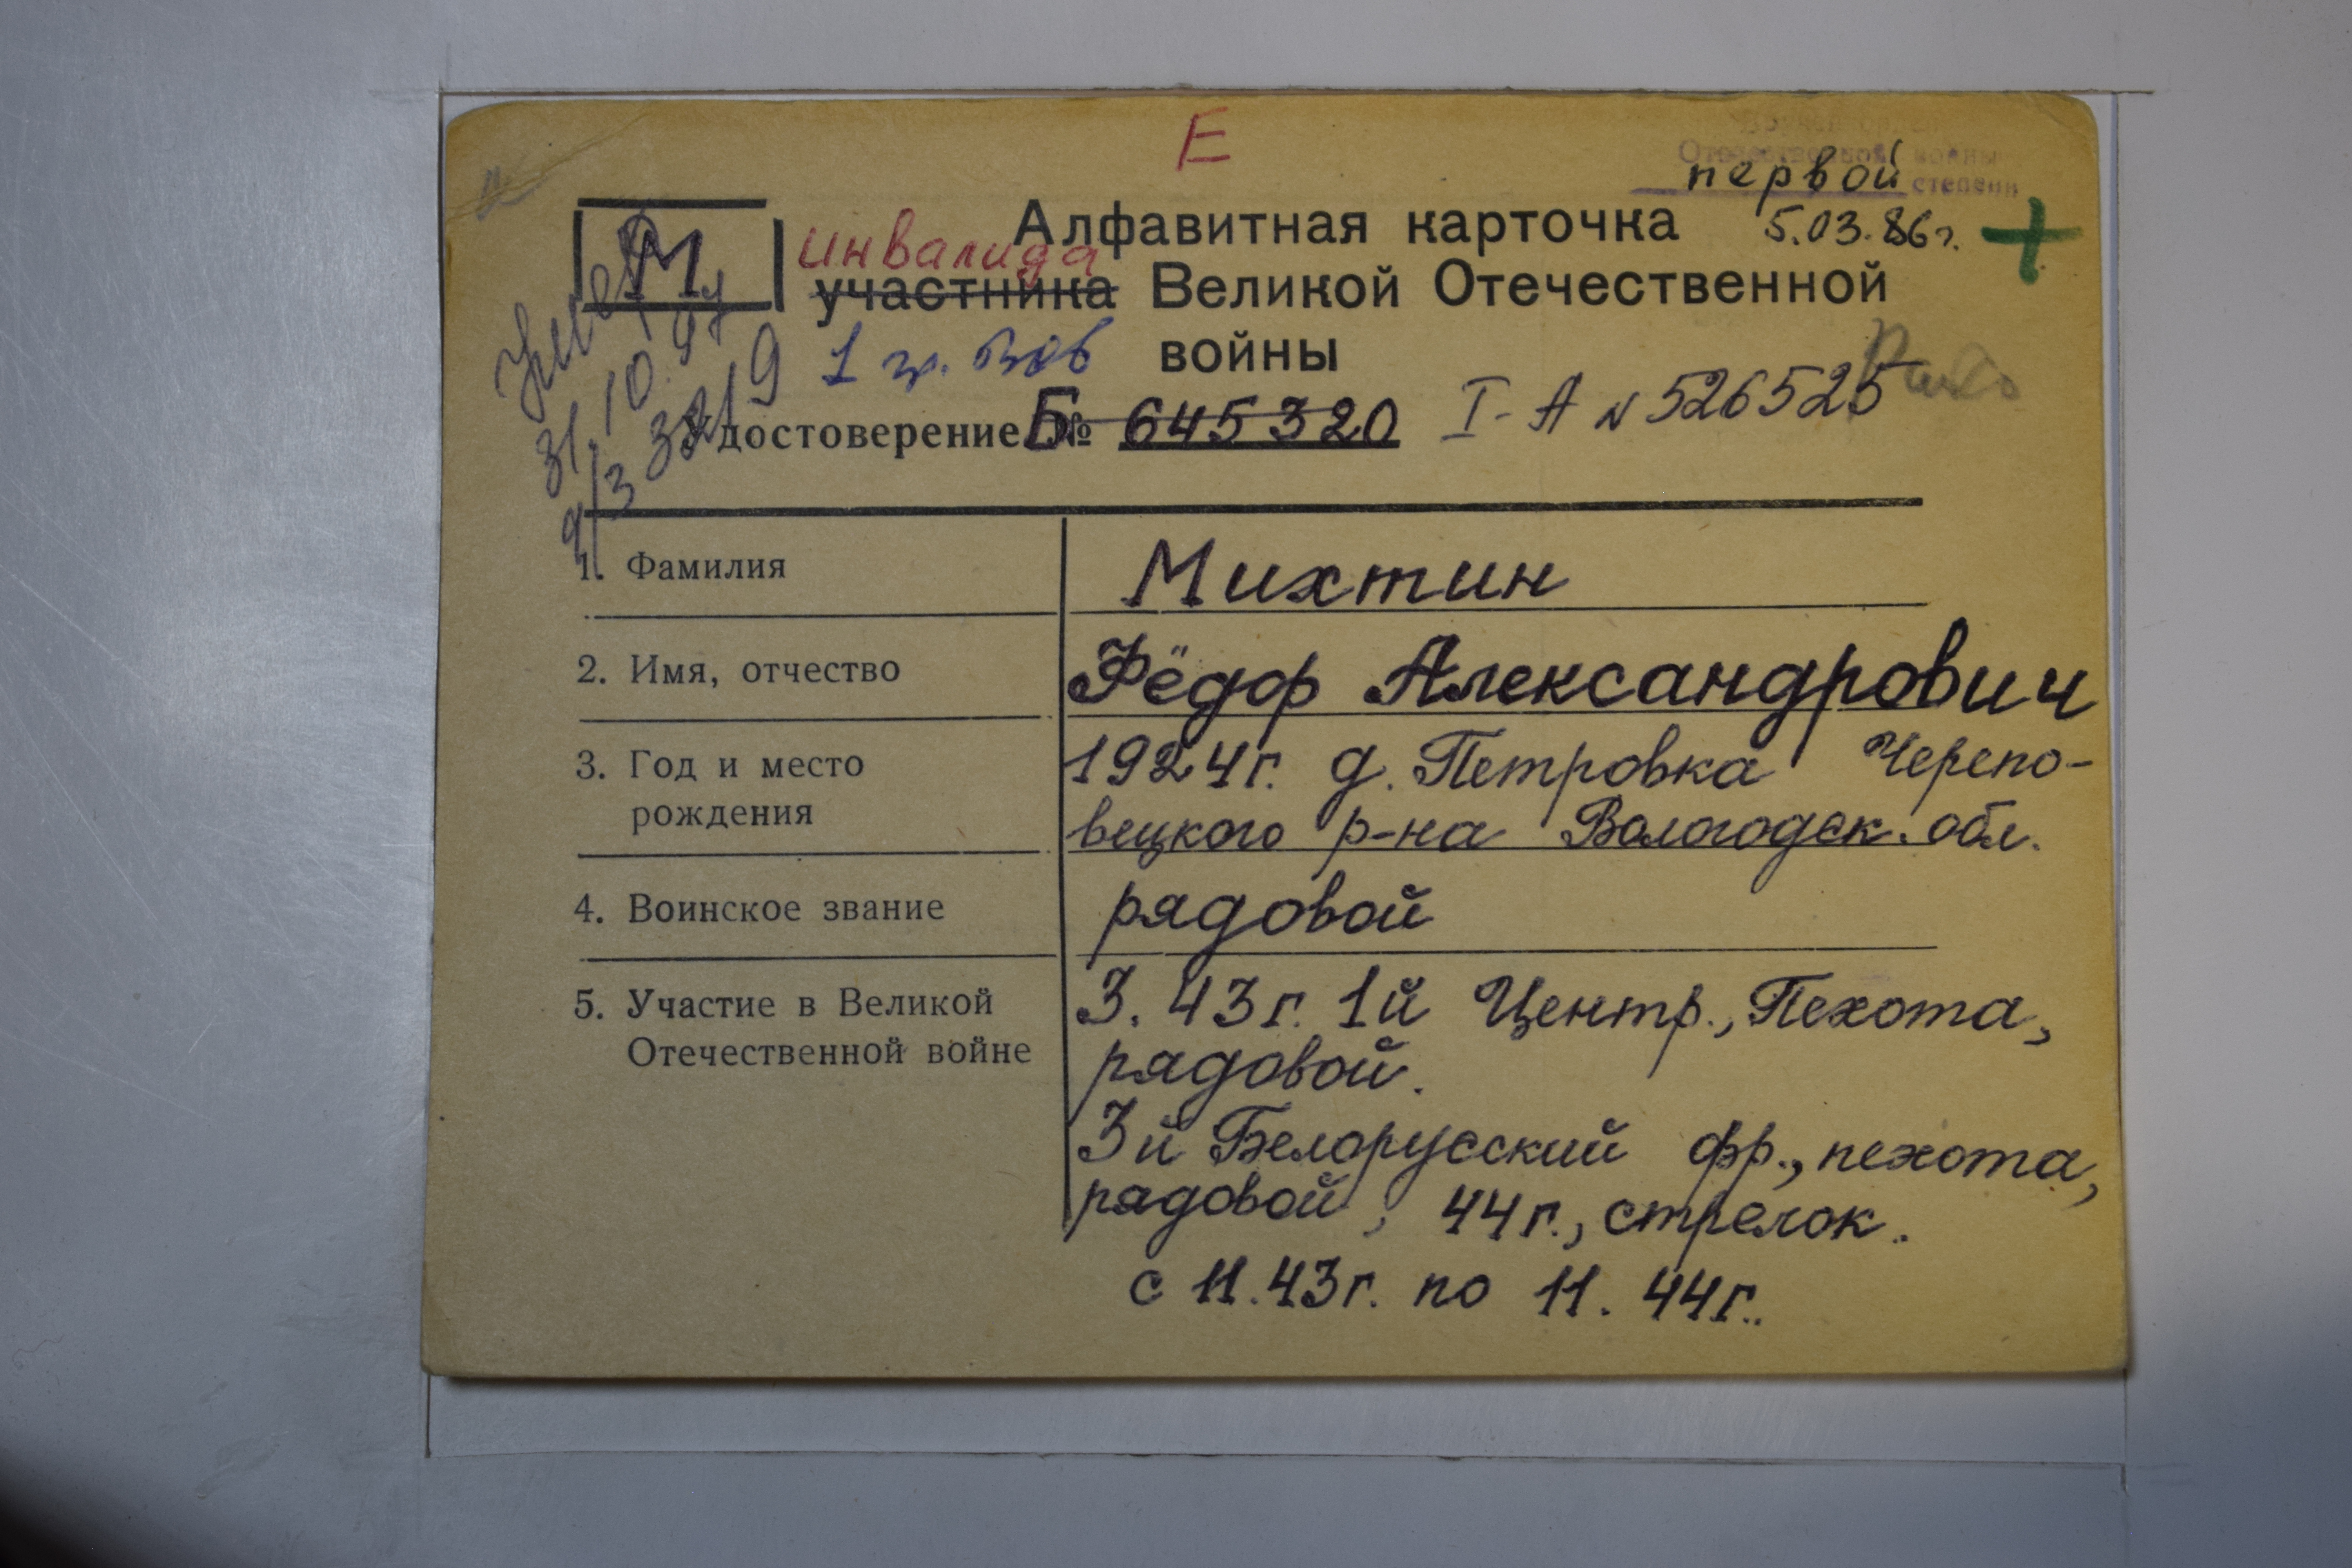 Е
Отечественной войны
первой степени
М
Алфавитная карточка 5.03.86г. +
инвалида
участника Великой Отечественной
войны
1 гр. ВОВ
Умер
31.10.97
а/з 3219
Удостоверение Б № 645320 I-А N 526525
1. Фамилия
Михтин
2. Имя, отчество
Фёдор Александрович
3. Год и место
рождения
1924г. д. Петровка Черепо-
вецкого р-на Вологодск. обл.
4. Воинское звание
рядовой
5. Участие в Великой
Отечественной войне
3. 43г. 1й Центр., Пехота,
рядовой.
3й Белорусский фр., пехота,
рядовой, 44г., стрелок.
с 11.43г. по 11. 44г..